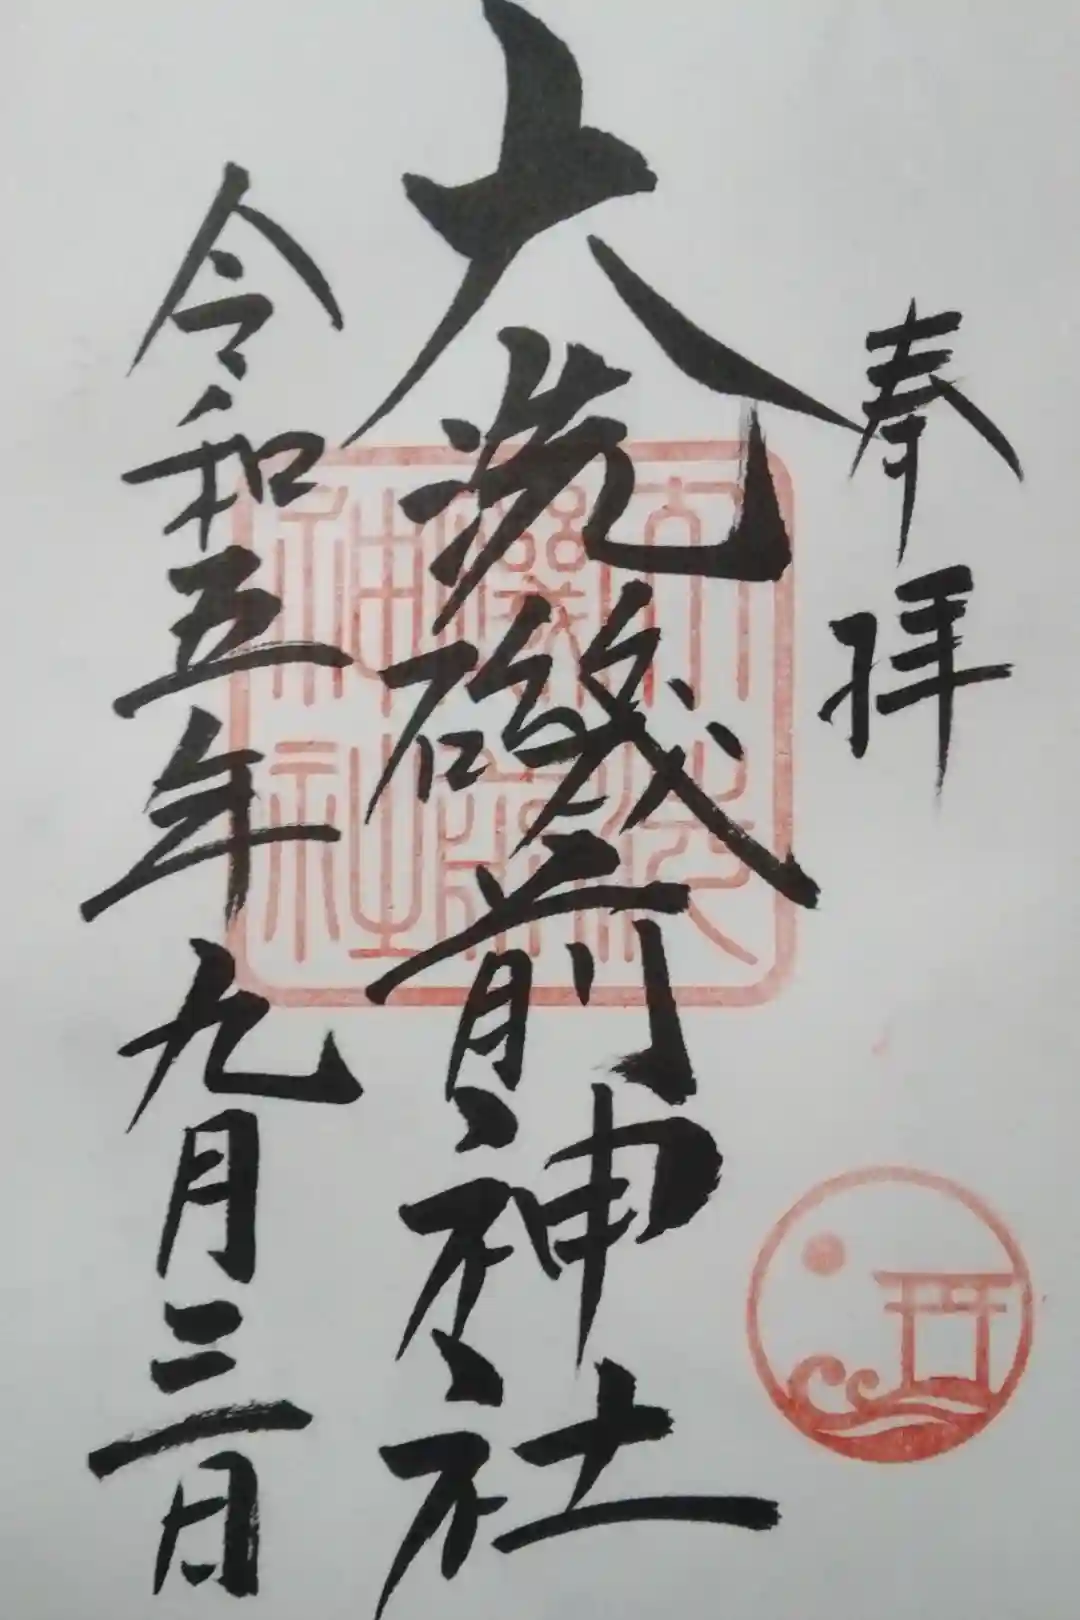 奉拝
大洗磯前神社
令和五年九月三日
大洗磯前神社